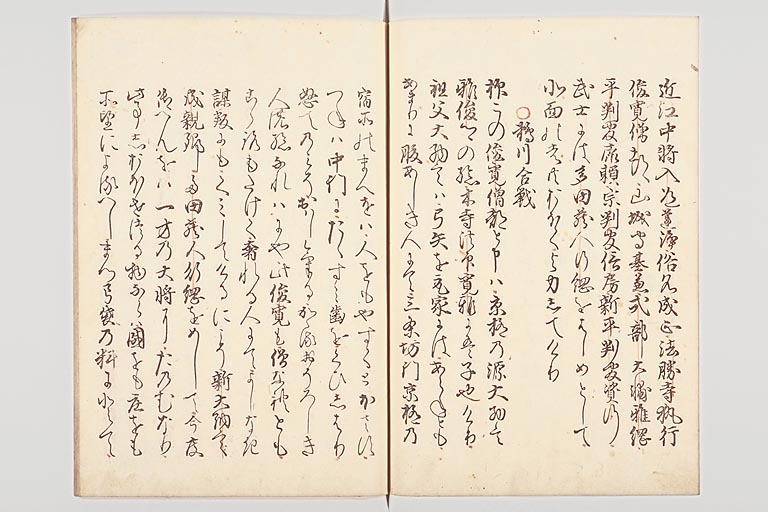 近江中将入道蓮浄俗名成正法勝寺執行
俊寛僧都山城守基兼式部大輔雅綱
平判官康頼宗判官信房新平判官資行
武士には多田蔵人行綱をはしめとして
北面の者ともおほく与力してけり
○鵜川合戦
抑この俊寛僧都と申ハ京極乃源大納言
雅俊卿の孫木寺法印寛雅にハ子也けり
祖父大納言ハ弓矢を取家にはあらねとも
あまりに腹あしき人にて三条坊門京極乃
宿所のまへをハ人をもやすくとおさす
つねハ中門にたゝすみ歯をくひしはり
怒てのみそおはしける
人の孫なれハにや此俊寛も僧なれとも
こゝろもたけく奢れる人にてよしなき
謀叛にもくミしてけるにこそ新大納言
成親卿多田蔵人行綱をめして今度
御へんをハ一方乃大将にたのむなり
此事しおほせつる物ならハ国をも庄をも
所望によるへしまつ弓袋乃料にとて